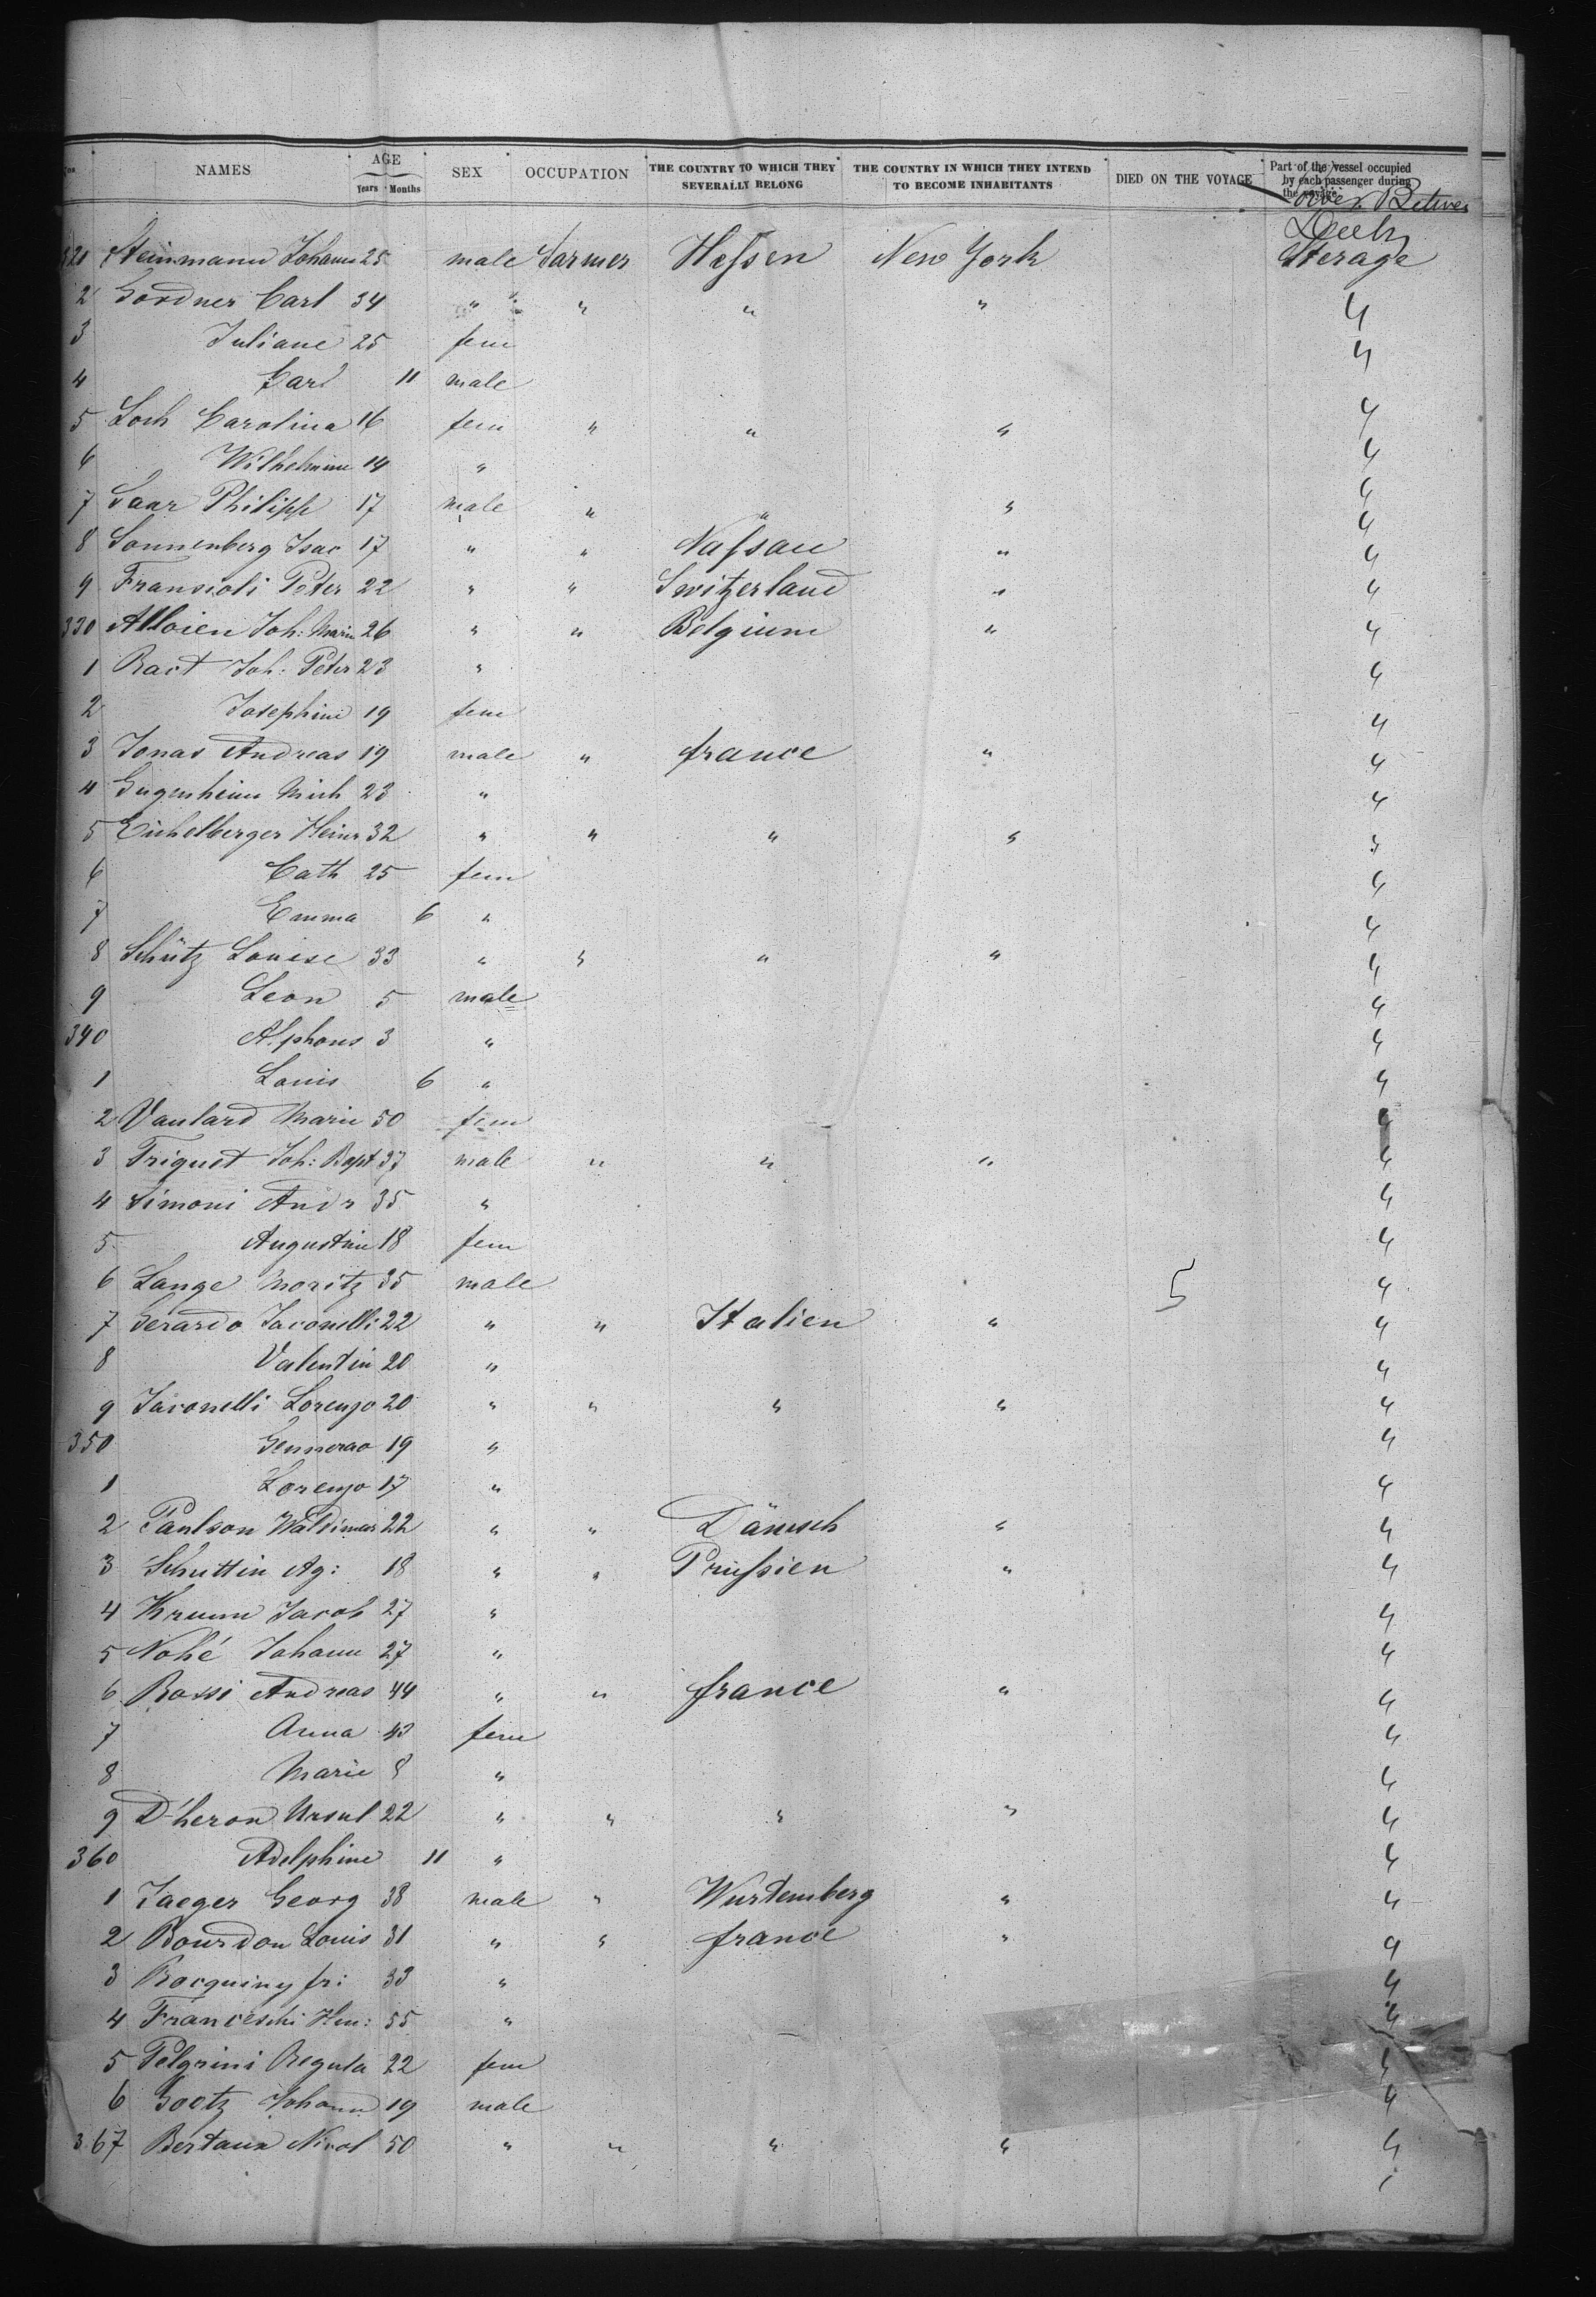 NAMES AGE Years Months SEX OCCUPATION THE COUNTRY TO WHICH THEY SEVERALLY BELONG THE COUNTRY IN WHICH THEY INTEND TO BECOME INHABITANTS DIED ON THE VOYAGE Part of the vessel occupied by each passenger during the voyage
Deck
321 Steinmann Johann 25 male Farmer Hessen New York Sterage
2 Gordner Carl 34 " " " " "
3 Juliane 25 fem "
4 Carl 11 male
5 Loch Carolina 16 fem " " " "
6 Wilhelmine 14 " "
7 Saar Philipp 17 male " " " "
8 Sonnenberg Isac 17 " " Nassau " "
9 Fransioli Peter 22 " " Switzerland " "
330 Alloien Joh: Marie 26 " " Belgium " "
1 Ract Joh: Peter 23 " "
2 Josephine 19 fem "
3 Jonas Andreas 19 male " france " "
4 Gugenheim Mich 23 " "
5 Eichelberger Heinr 32 " " " " "
6 Cath 25 fem "
7 Emma 6 " "
8 Schütz Louise 33 " " " " "
9 Leon 5 male "
340 Alphons 3 " "
1 Louis 6 " "
2 Vautard Marie 50 fem "
3 Triquet Joh: Bapt 37 male " " " "
4 Simoni Andr 35 " "
5 Augustine 18 fem "
6 Lange Moritz 35 male "
7 Gerardo Jaconelli 22 " " Italien " 5 "
8 Valentin 20 " "
9 Jaconelli Lorenzo 20 " " " " "
350 Gennerao 19 " "
1 Lorenzo 17 " "
2 Paulson Waldimar 22 " " Dänisch " "
3 Schuttin Ag: 18 " " Prussien " "
4 Krumm Jacob 27 " "
5 Nohé Johann 27 " "
6 Rossi Andreas 44 " " france " "
7 Anna 43 fem "
8 Marie 8 " "
9 D'heron Ursul 22 " " " " "
360 Adelphine 11 " "
1 Jaeger Georg 38 male " Wurtemberg " "
2 Bourdon Louis 31 " " france " "
3 Rocquiny fr: 33 " "
4 Franceschi Hen: 55 " "
5 Pelgrini Regula 22 fem "
6 Goetz Johann 19 male "
367 Bertaux Nicol 50 " " " " "